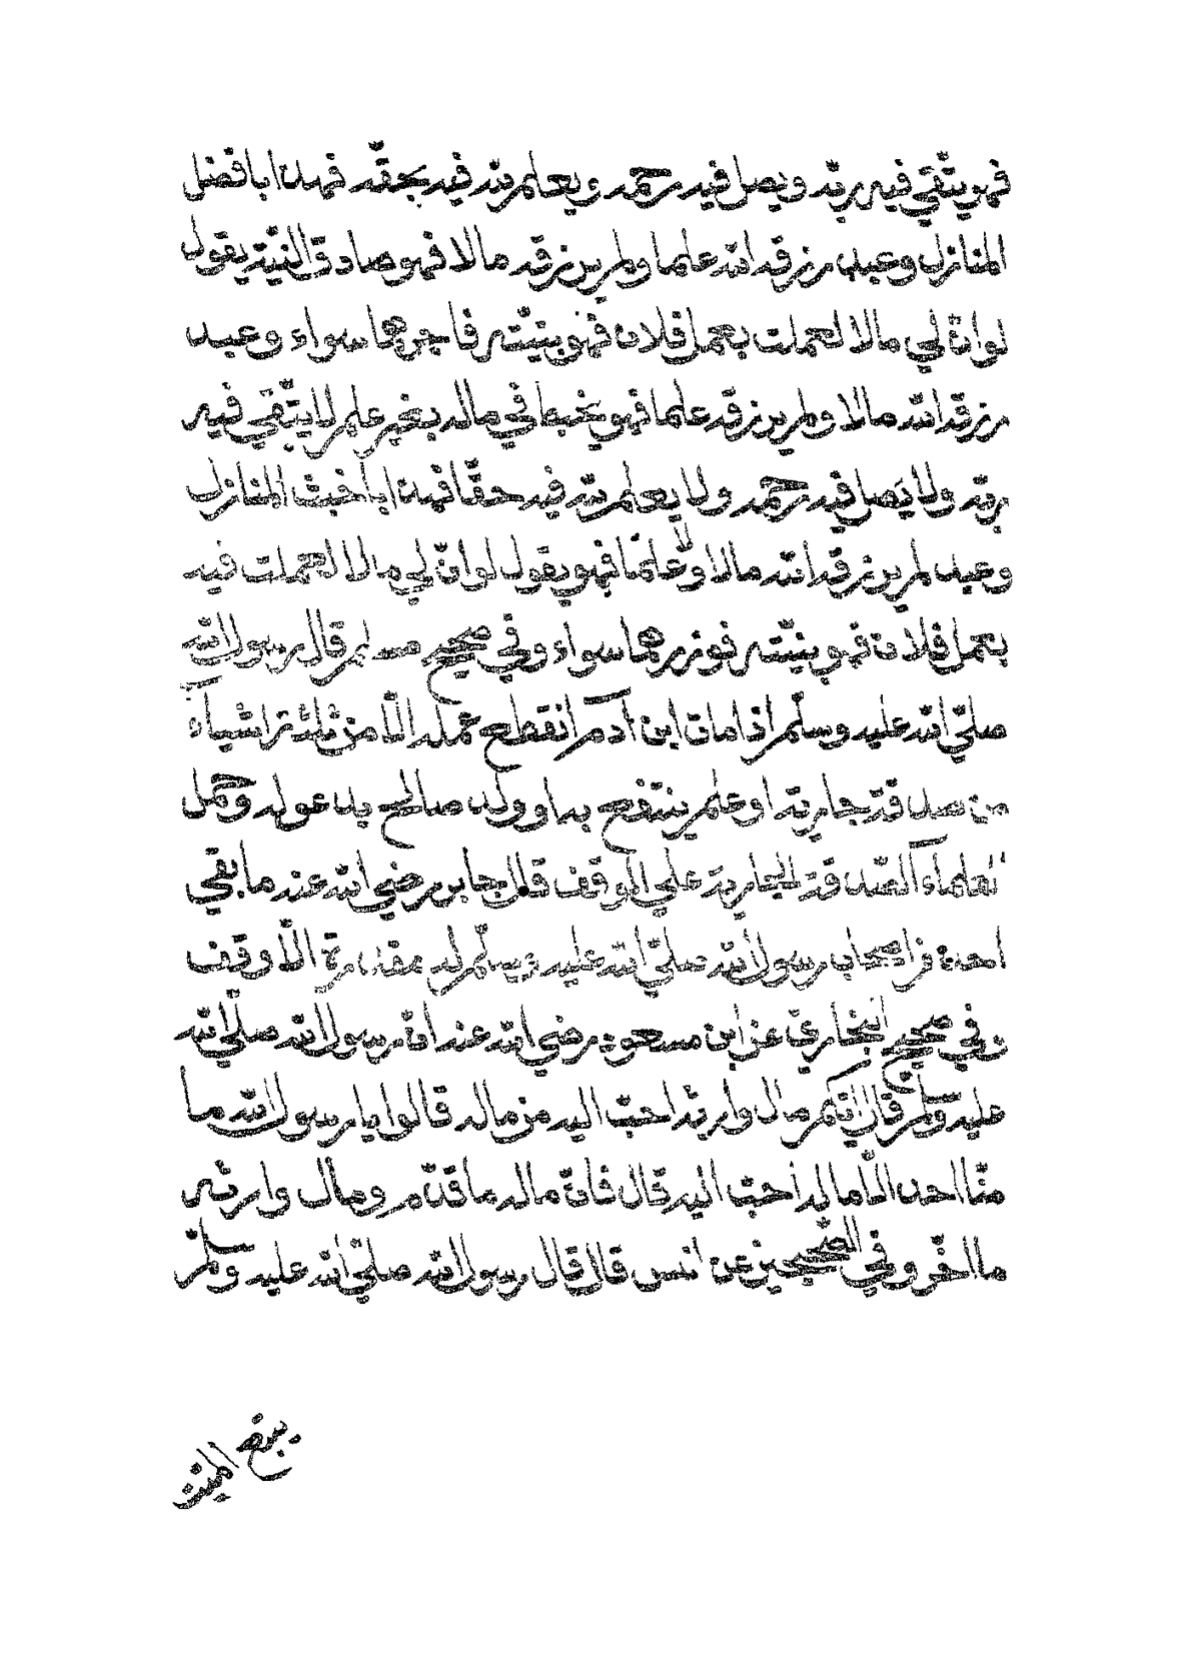 فهو يتقي فيه ربّه ويصل فيه رحمه ويعلم لله فيه بحقّه فهذا بافضل
المنازل وعبد رزقه الله علما ولم يرزقه مالا فهو صادق النيّة يقول
لو انّ لي مالا لعملت بعمل فلان فهو بنيّته فاجرهما سواء وعبد
رزقه الله مالا ولم يرزقه علما فهو يخبط في ماله بغير علم لا يتّقي فيه
ربّه ولا يَصل فيه رحمه ولا يعلم لله فيه حقّا فهذا باخبث المنازل
وعبد لم يرزقه الله مالا ولا علمًا فهو يقول لو انّ لي مالا لعملت فيه
بعمل فلان فهو بنيّته فوزرهما سواء وفي صحيح مسلم قال رسول الله
صلّي الله عليه وسلّم اذا مات ابن آدم انقطع عمله الّا من ثلثة اشياء
من صدقة جارية او علم ينتفع به او ولد صالح يدعو له وحمل
العلماء الصّدقة الجارية علي الوقف قال جابر رضي الله عنه ما بقي
احد من اصحاب رسول الله صلّي الله عليه وسلّم له مقدرة الّا وقف
وفي صحيح البخاري عن ابن مسعود رضي الله عنه انّ رسول الله صلّي الله
عليه وسلم قال ايّكم مال وارثه احبّ اليه من ماله قالوا يا رسول الله ما
منّا احد الّا ماله احبّ اليه قال فانّ ماله ما قدّم ومال وارثه
ما اخّر وفي الصّحيحين عن انس قال قال رسول الله صلّي الله عليه وسلّم
يتبع الميت